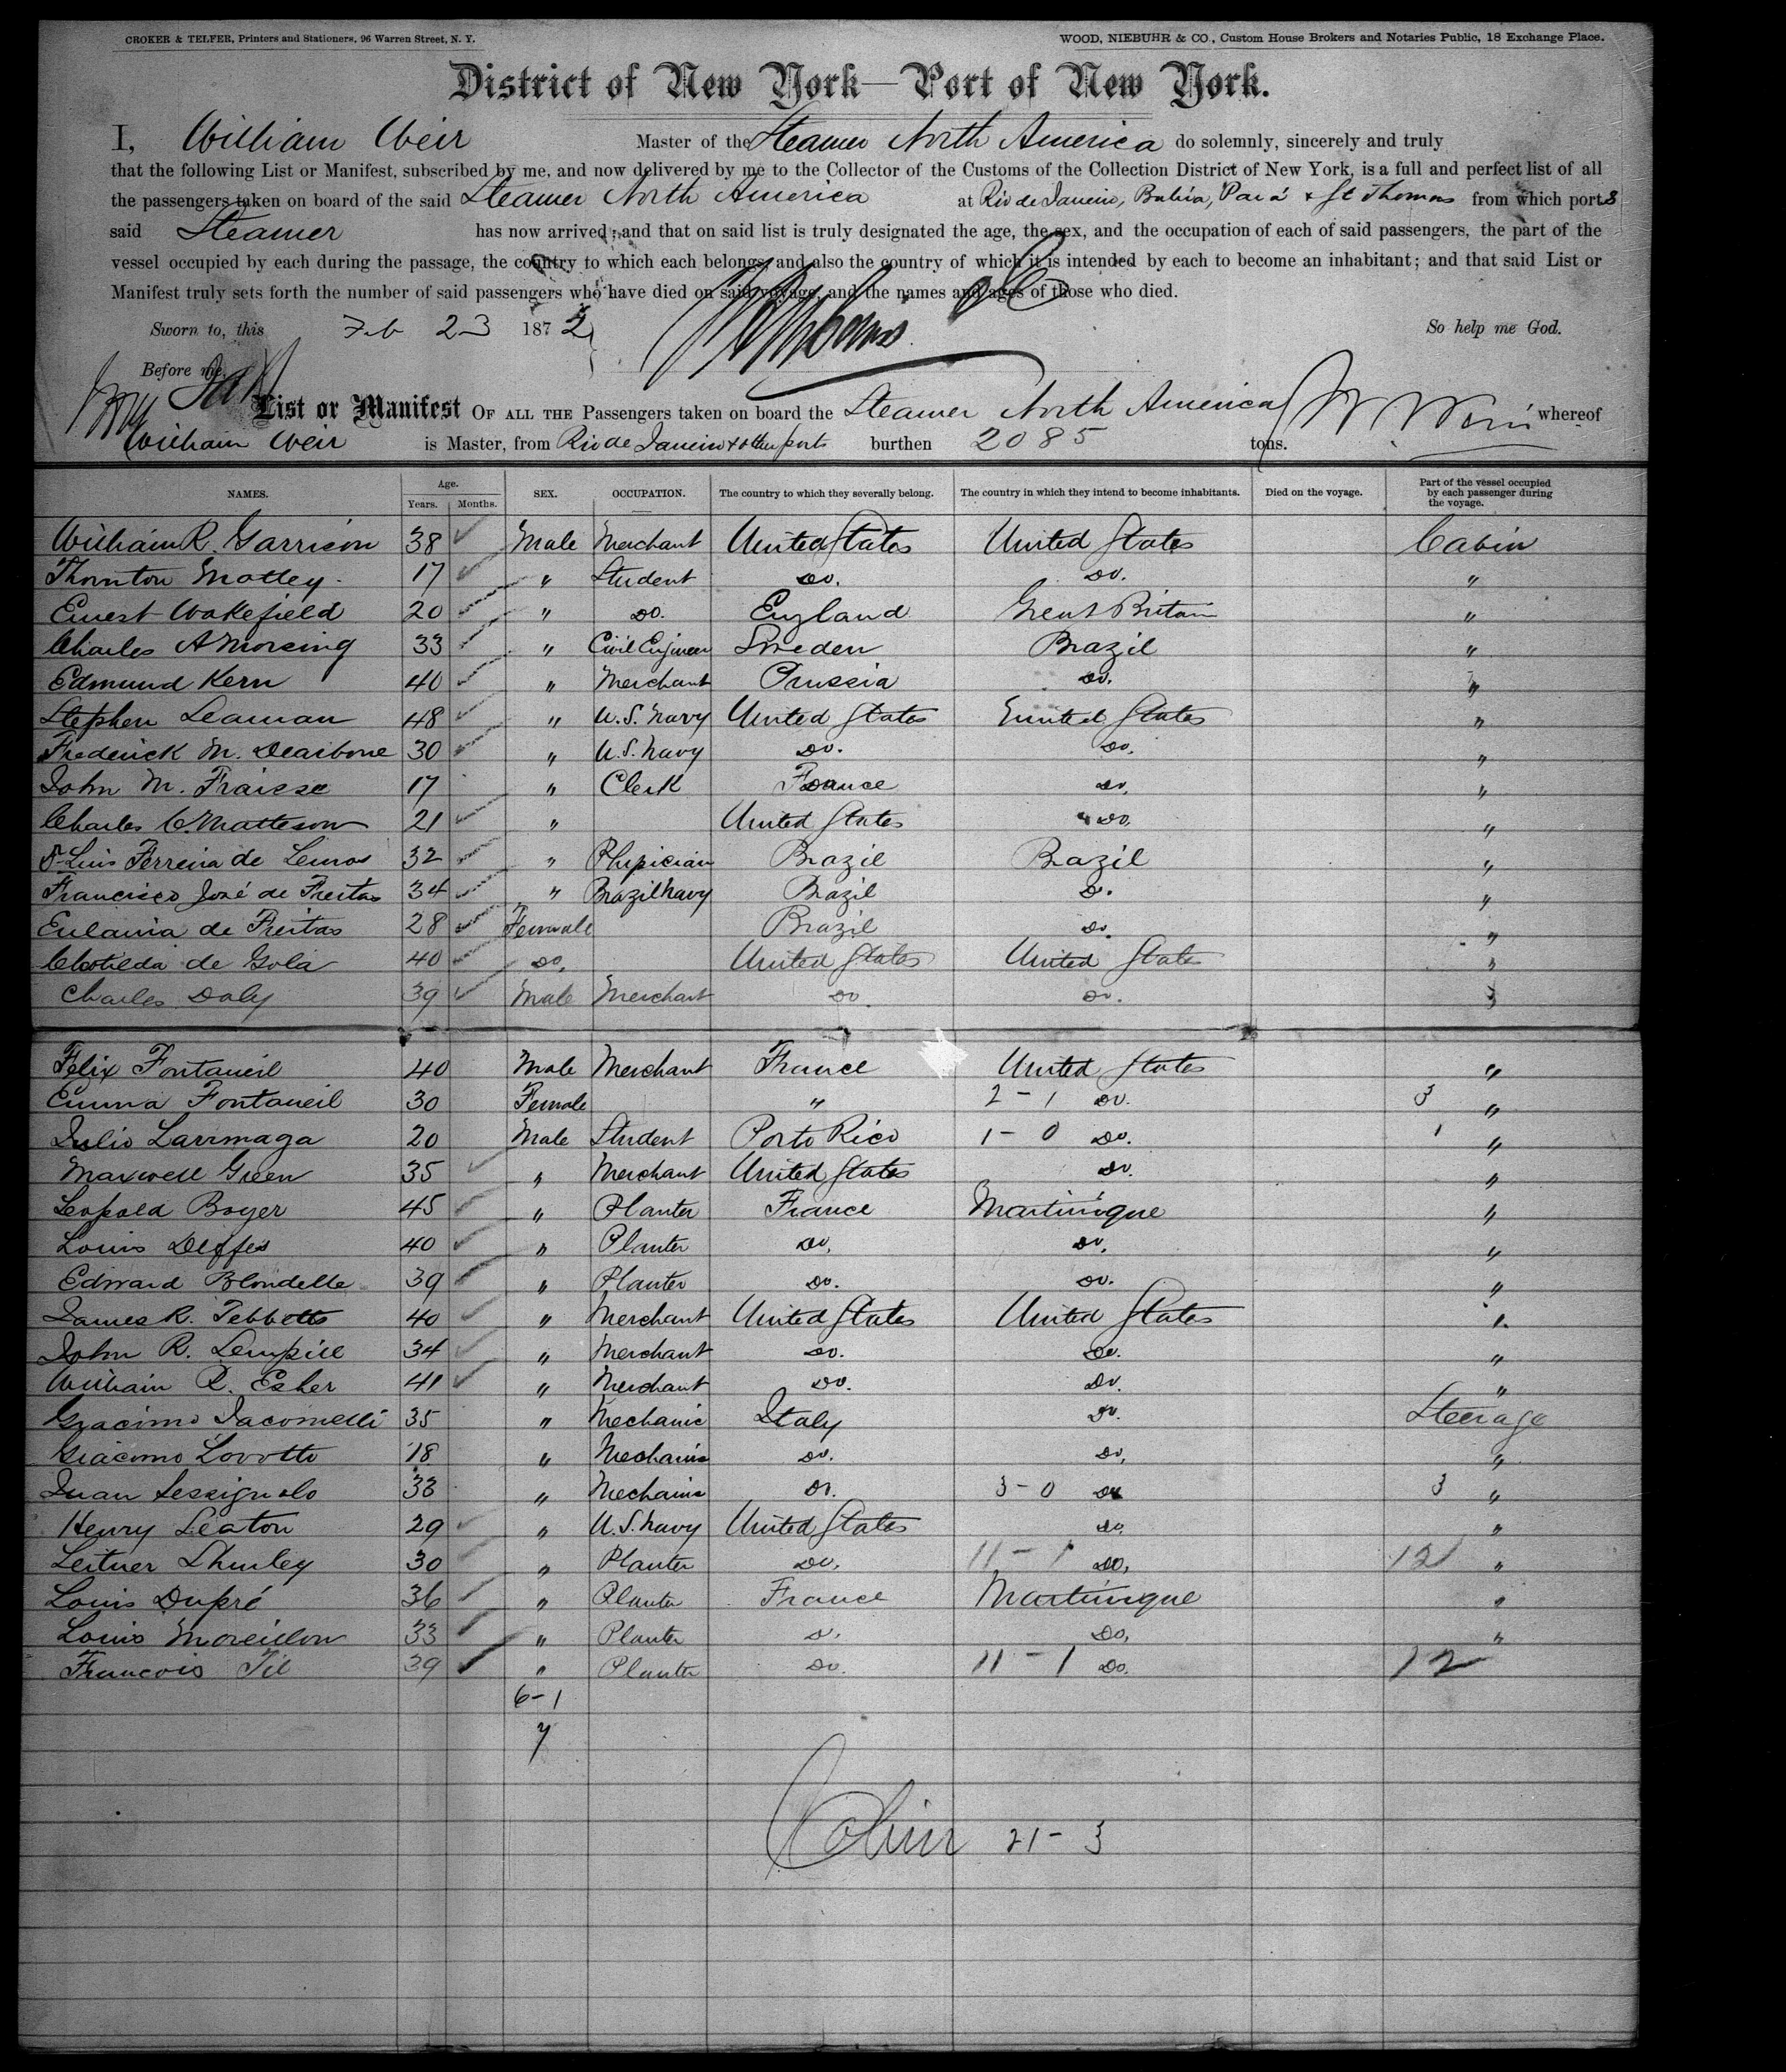 CROKER & TELFER, Printers and Stationers, 96 Warren Street, N. Y. WOOD, NIEBUHR & CO., Custom House Brokers and Notaries Public, 18 Exchange Place.
District of New York—Port of New York.
I, William Weir Master of the Steamer North America do solemnly, sincerely and truly
that the following List or Manifest, subscribed by me, and now delivered by me to the Collector of the Customs of the Collection District of New York, is a full and perfect list of all
the passengers taken on board of the said Steamer North America at Rio de Janeiro, Bahia, Pará & St Thomas from which ports
said Steamer has now arrived; and that on said list is truly designated the age, the sex, and the occupation of each of said passengers, the part of the
vessel occupied by each during the passage, the country to which each belongs, and also the country of which it is intended by each to become an inhabitant; and that said List or
Manifest truly sets forth the number of said passengers who have died on said voyage, and the names and ages of those who died.
Sworn to, this Feb 23 1872 So help me God.
Before me,
List or Manifest OF ALL THE Passengers taken on board the Steamer North America W. Weir whereof
William Weir is Master, from Rio de Janeiro & other ports burthen 2085 tons.
NAMES. Age. Years. Months. SEX. OCCUPATION. The country to which they severally belong. The country in which they intend to become inhabitants. Died on the voyage. Part of the vessel occupied by each passenger during the voyage.
William R. Garrison 38 Male Merchant United States United States Cabin
Thornton Motley 17 " Student Do. Do. "
Ernest Wakefield 20 " Do. England Great Britain "
Charles A Morsing 33 " Civil Engineer Sweden Brazil "
Edmund Kern 40 " Merchant Prussia Do. "
Stephen Seaman 48 " U.S. Navy United States United States "
Frederick M. Dearbone 30 " U.S. Navy Do. Do. "
John M. Fraisse 17 " Clerk France Do. "
Charles C. Matteson 21 " United States " Do. "
Dr Luis Ferreira de Lemos 32 " Physician Brazil Brazil "
Francisco José de Freitas 34 " Brazil Navy Brazil Do. "
Eulania de Freitas 28 Female Brazil Do. "
Clotilda de Gola 40 Do. United States United States "
Charles Daly 39 Male Merchant Do. Do. "
Felix Fontaneil 40 Male Merchant France United States "
Emma Fontaneil 30 Female " 2-1 Do. 3 "
Julio Larrinaga 20 Male Student Porto Rico 1-0 Do. 1 "
Maxwell Green 35 " Merchant United States Do. "
Leopold Boyer 45 " Planter France Martinique "
Louis Deffes 40 " Planter Do. Do. "
Edward Blondelle 39 " Planter Do. Do. "
James R. Tebbetts 40 " Merchant United States United States "
John R. Lempill 34 " Merchant Do. Do. "
William R. Esher 41 " Merchant Do. Do. "
Giacimo Jacomelli 35 " Mechanic Italy Do. Steerage
Giacomo Lovotto 18 " Mechanic Do. Do. "
Juan Sessignolo 33 " Mechanic Do. 3-0 Do. 3 "
Henry Seaton 29 " U.S. Navy United States Do. "
Leitner Shurley 30 " Planter Do. 11-1 Do. 12 "
Louis Dupré 36 " Planter France Martinique "
Louis Moreillon 33 " Planter Do. Do. "
Francois Til 39 " Planter Do. 11-1 Do. 12
6-1
7
21-3